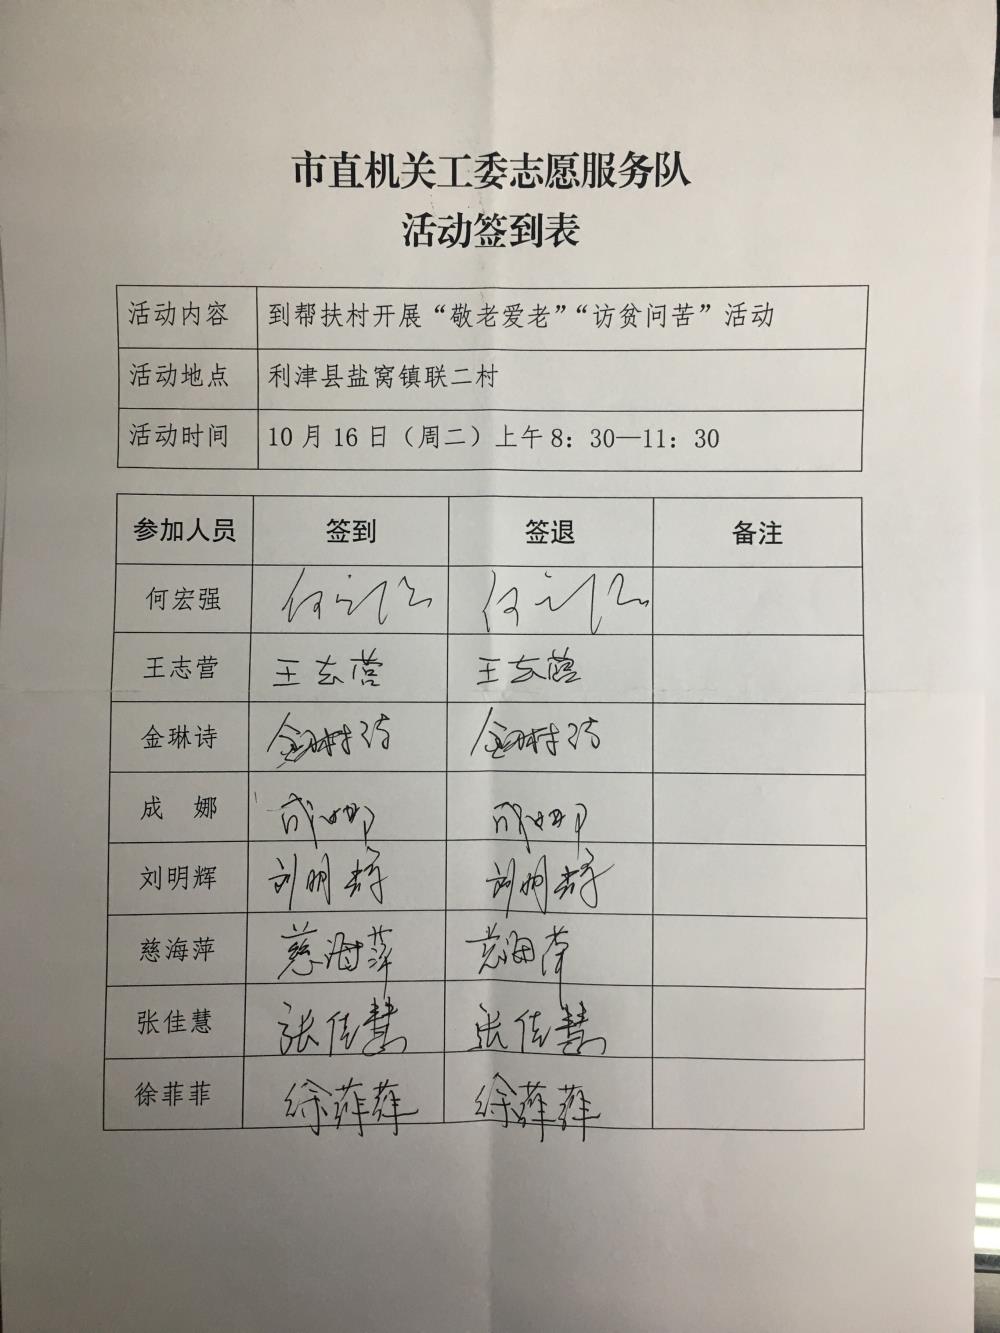 市直机关工委志愿服务队
活动签到表
活动内容 到帮扶村开展“敬老爱老”“访贫问苦”活动
活动地点 利津县盐窝镇联二村
活动时间 10月16日（周二）上午8：30—11：30
参加人员 签到 签退 备注
何宏强
王志营 王志营 王志营
金琳诗 金琳诗 金琳诗
成 娜 成娜 成娜
刘明辉 刘明辉 刘明辉
慈海萍 慈海萍 慈海萍
张佳慧 张佳慧 张佳慧
徐菲菲 徐菲菲 徐菲菲